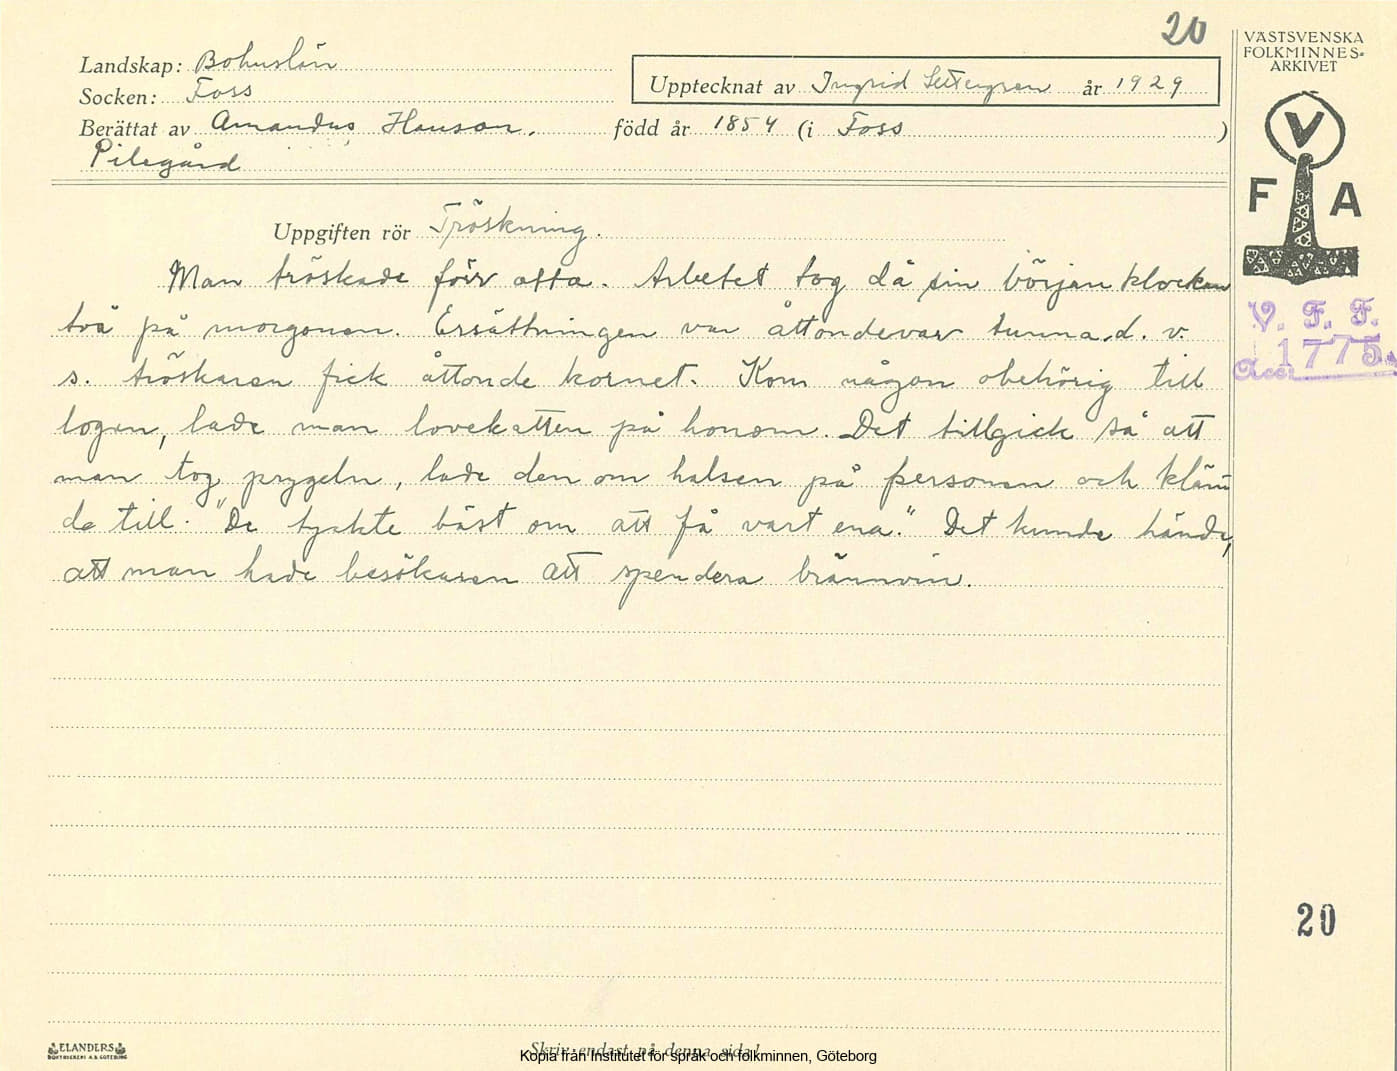 20
VÄSTSVENSKA
FOLKMINNES-
ARKIVET
Landskap: Bohuslän
Socken: Foss
Upptecknat av Ingrid Settergren år 1929
Berättat av Amandus Hanson. född år 1854 (i Foss )
Pilegård
V
F A
Uppgiften rör Tröskning.
Man tröskade förr otta. Arbetet tog då sin början klockan
två på morgonen. Ersättningen var åttondevar tunna, d. v.
s. tröskaren fick åttonde kornet. Kom någon obehörig till
logen, lade man lovekatten på honom. Det tillgick så att
man tog prygeln, lade den om halsen på personen och kläm
de till. "De tyckte bäst om att få vart ena." Det kunde hända,
att man hade besökaren att spendera brännvin.
V. F. F.
Acc. 1775
20
ELANDERS
BOKTRYCKERI A.B. GÖTEBORG
Skriv endast på denna sida!
Kopia från Institutet för språk och folkminnen, Göteborg